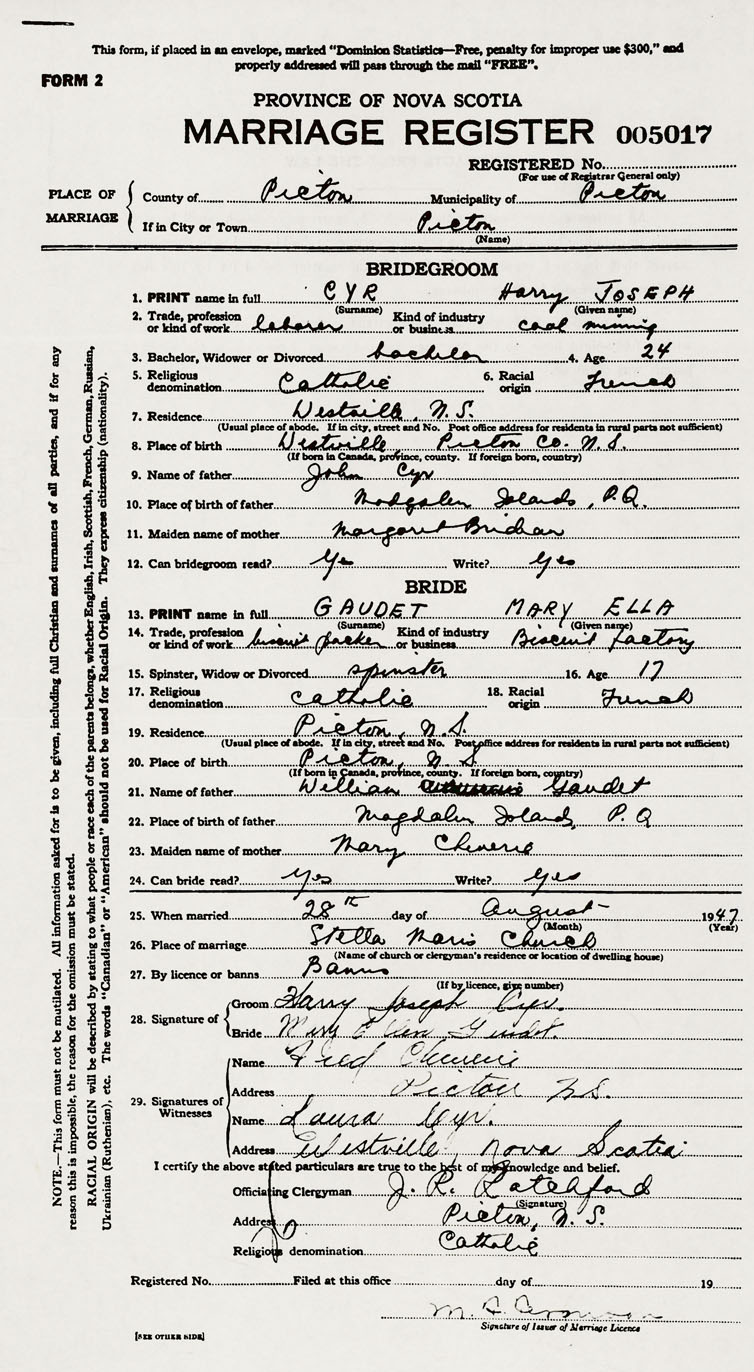 This form, if placed in an envelope, marked “Dominion Statistics—Free, penalty for improper use $300,” and
properly addressed will pass through the mail “FREE”.
FORM 2
PROVINCE OF NOVA SCOTIA
MARRIAGE REGISTER 005017
REGISTERED No.
(For use of Registrar General only)
PLACE OF MARRIAGE
County of Pictou Municipality of Pictou
If in City or Town Pictou
(Name)
BRIDEGROOM
1. PRINT name in full CYR Harry JOSEPH
(Surname) (Given name)
2. Trade, profession or kind of work laborer Kind of industry or business coal mining
3. Bachelor, Widower or Divorced bachelor 4. Age 24
5. Religious denomination Catholic 6. Racial origin French
7. Residence Westville, N.S.
(Usual place of abode. If in city, street and No. Post office address for residents in rural parts not sufficient)
8. Place of birth Westville Pictou Co. N.S.
(If born in Canada, province, county. If foreign born, country)
9. Name of father John Cyr
10. Place of birth of father Madgalen Islands, P.Q.
11. Maiden name of mother Margaret
12. Can bridegroom read? Yes Write? Yes
BRIDE
13. PRINT name in full GAUDET MARY ELLA
(Surname) (Given name)
14. Trade, profession or kind of work biscuit packer Kind of industry or business Biscuit factory
15. Spinster, Widow or Divorced spinster 16. Age 17
17. Religious denomination Catholic 18. Racial origin French
19. Residence Pictou, N.S.
(Usual place of abode. If in city, street and No. Post office address for residents in rural parts not sufficient)
20. Place of birth Pictou, N.S.
(If born in Canada, province, county. If foreign born, country)
21. Name of father William Gaudet
22. Place of birth of father Magdalen Islands, P.Q
23. Maiden name of mother Mary Cheverie
24. Can bride read? Yes Write? Yes
25. When married 28th day of August 1947
(Month) (Year)
26. Place of marriage Stella Maris Church
(Name of church or clergyman's residence or location of dwelling house)
27. By licence or banns Banns
(If by licence, give number)
28. Signature of
Groom Harry Joseph Cyr.
Bride Mary Ellen Gaudet.
29. Signatures of Witnesses
Name Fred Cheverie
Address Pictou N.S.
Name Laura Cyr.
Address Westville, Nova Scotia
I certify the above stated particulars are true to the best of my knowledge and belief.
Officiating Clergyman J. R. Ratchford
(Signature)
Address Pictou, N.S.
Religious denomination Catholic
Registered No. Filed at this office day of 19
Signature of Issuer of Marriage Licence
[SEE OTHER SIDE]
NOTE.—This form must not be mutilated. All information asked for is to be given, including full Christian and surnames of all parties, and if for any
reason this is impossible, the reason for the omission must be stated.
RACIAL ORIGIN will be described by stating to what people or race each of the parents belongs, whether English, Irish, Scottish, French, German, Russian,
Ukrainian (Ruthenian), etc. The words “Canadian” or “American” should not be used for Racial Origin. They express citizenship (nationality).